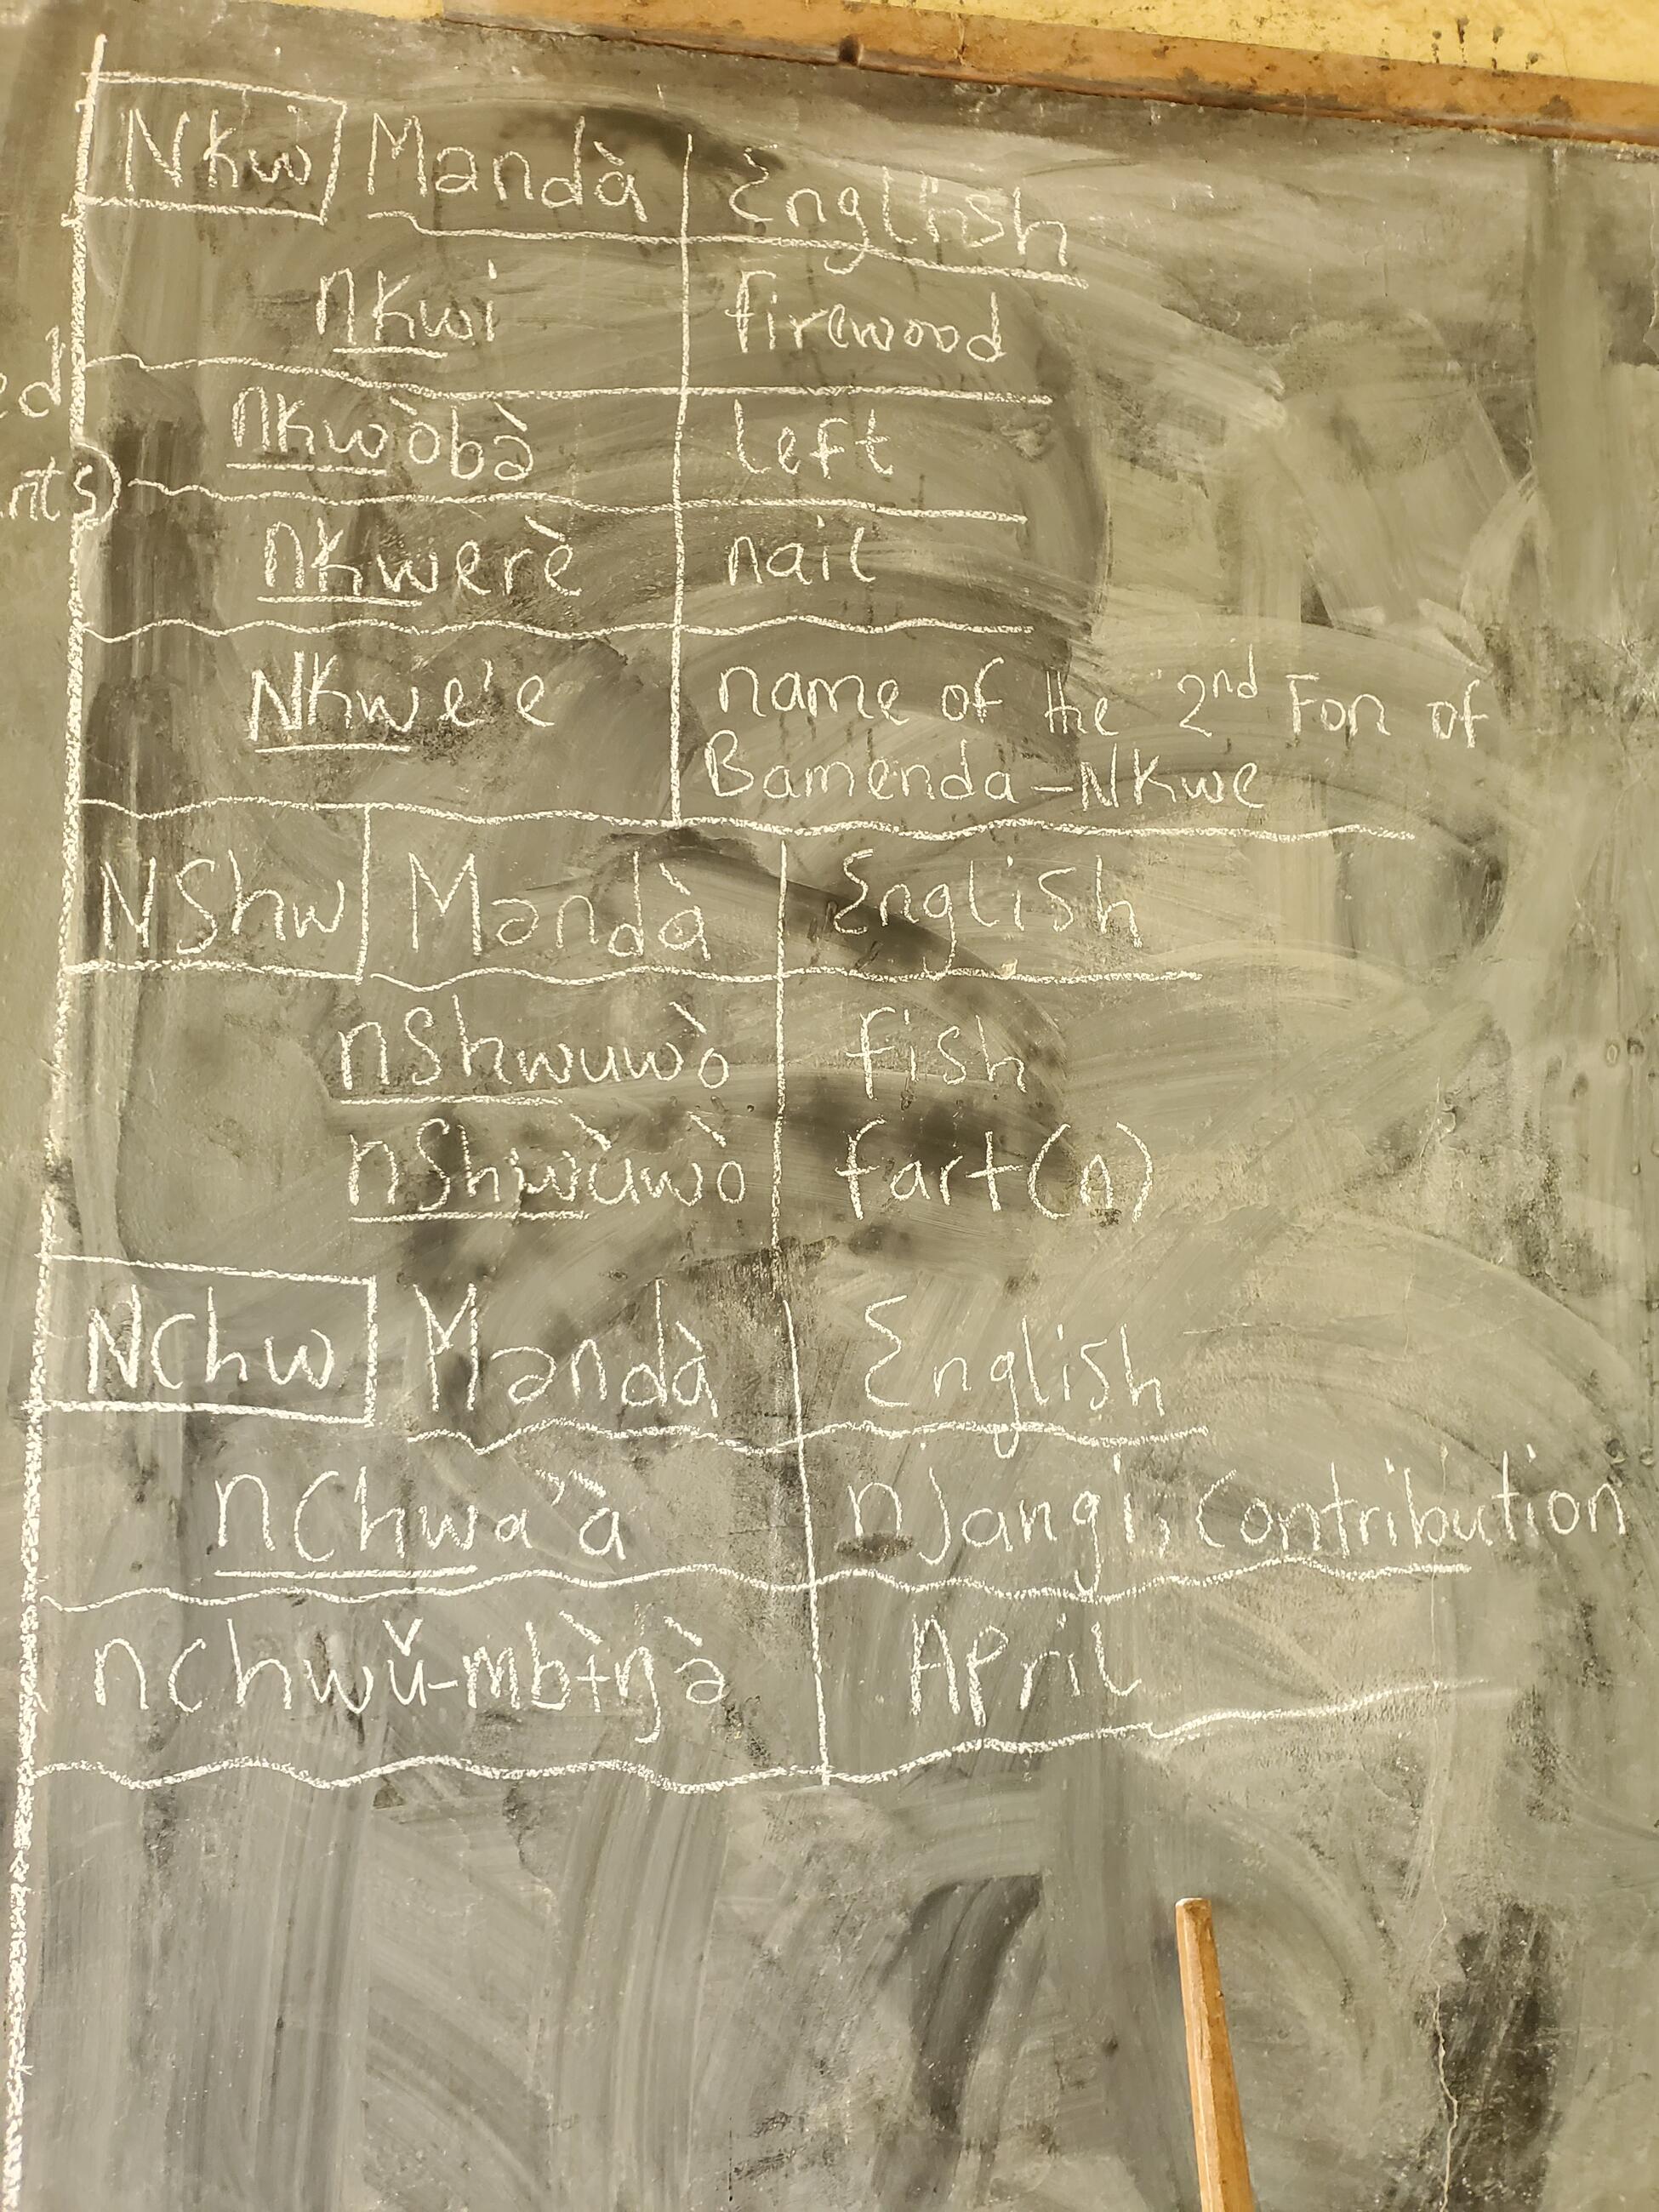 ed
nts)
Nkw Məndà English
nkwi firewood
nkwòbə̀ left
nkwerè nail
Nkwe'e name of the 2nd Fon of
Bamenda-Nkwe
NShw Məndà English
nshwuwò fish
nshwùwò fart(n)
Nchw Məndà English
nchwa'à njangi, contribution
nchwǔ-mbɨ̀ŋə̀ April